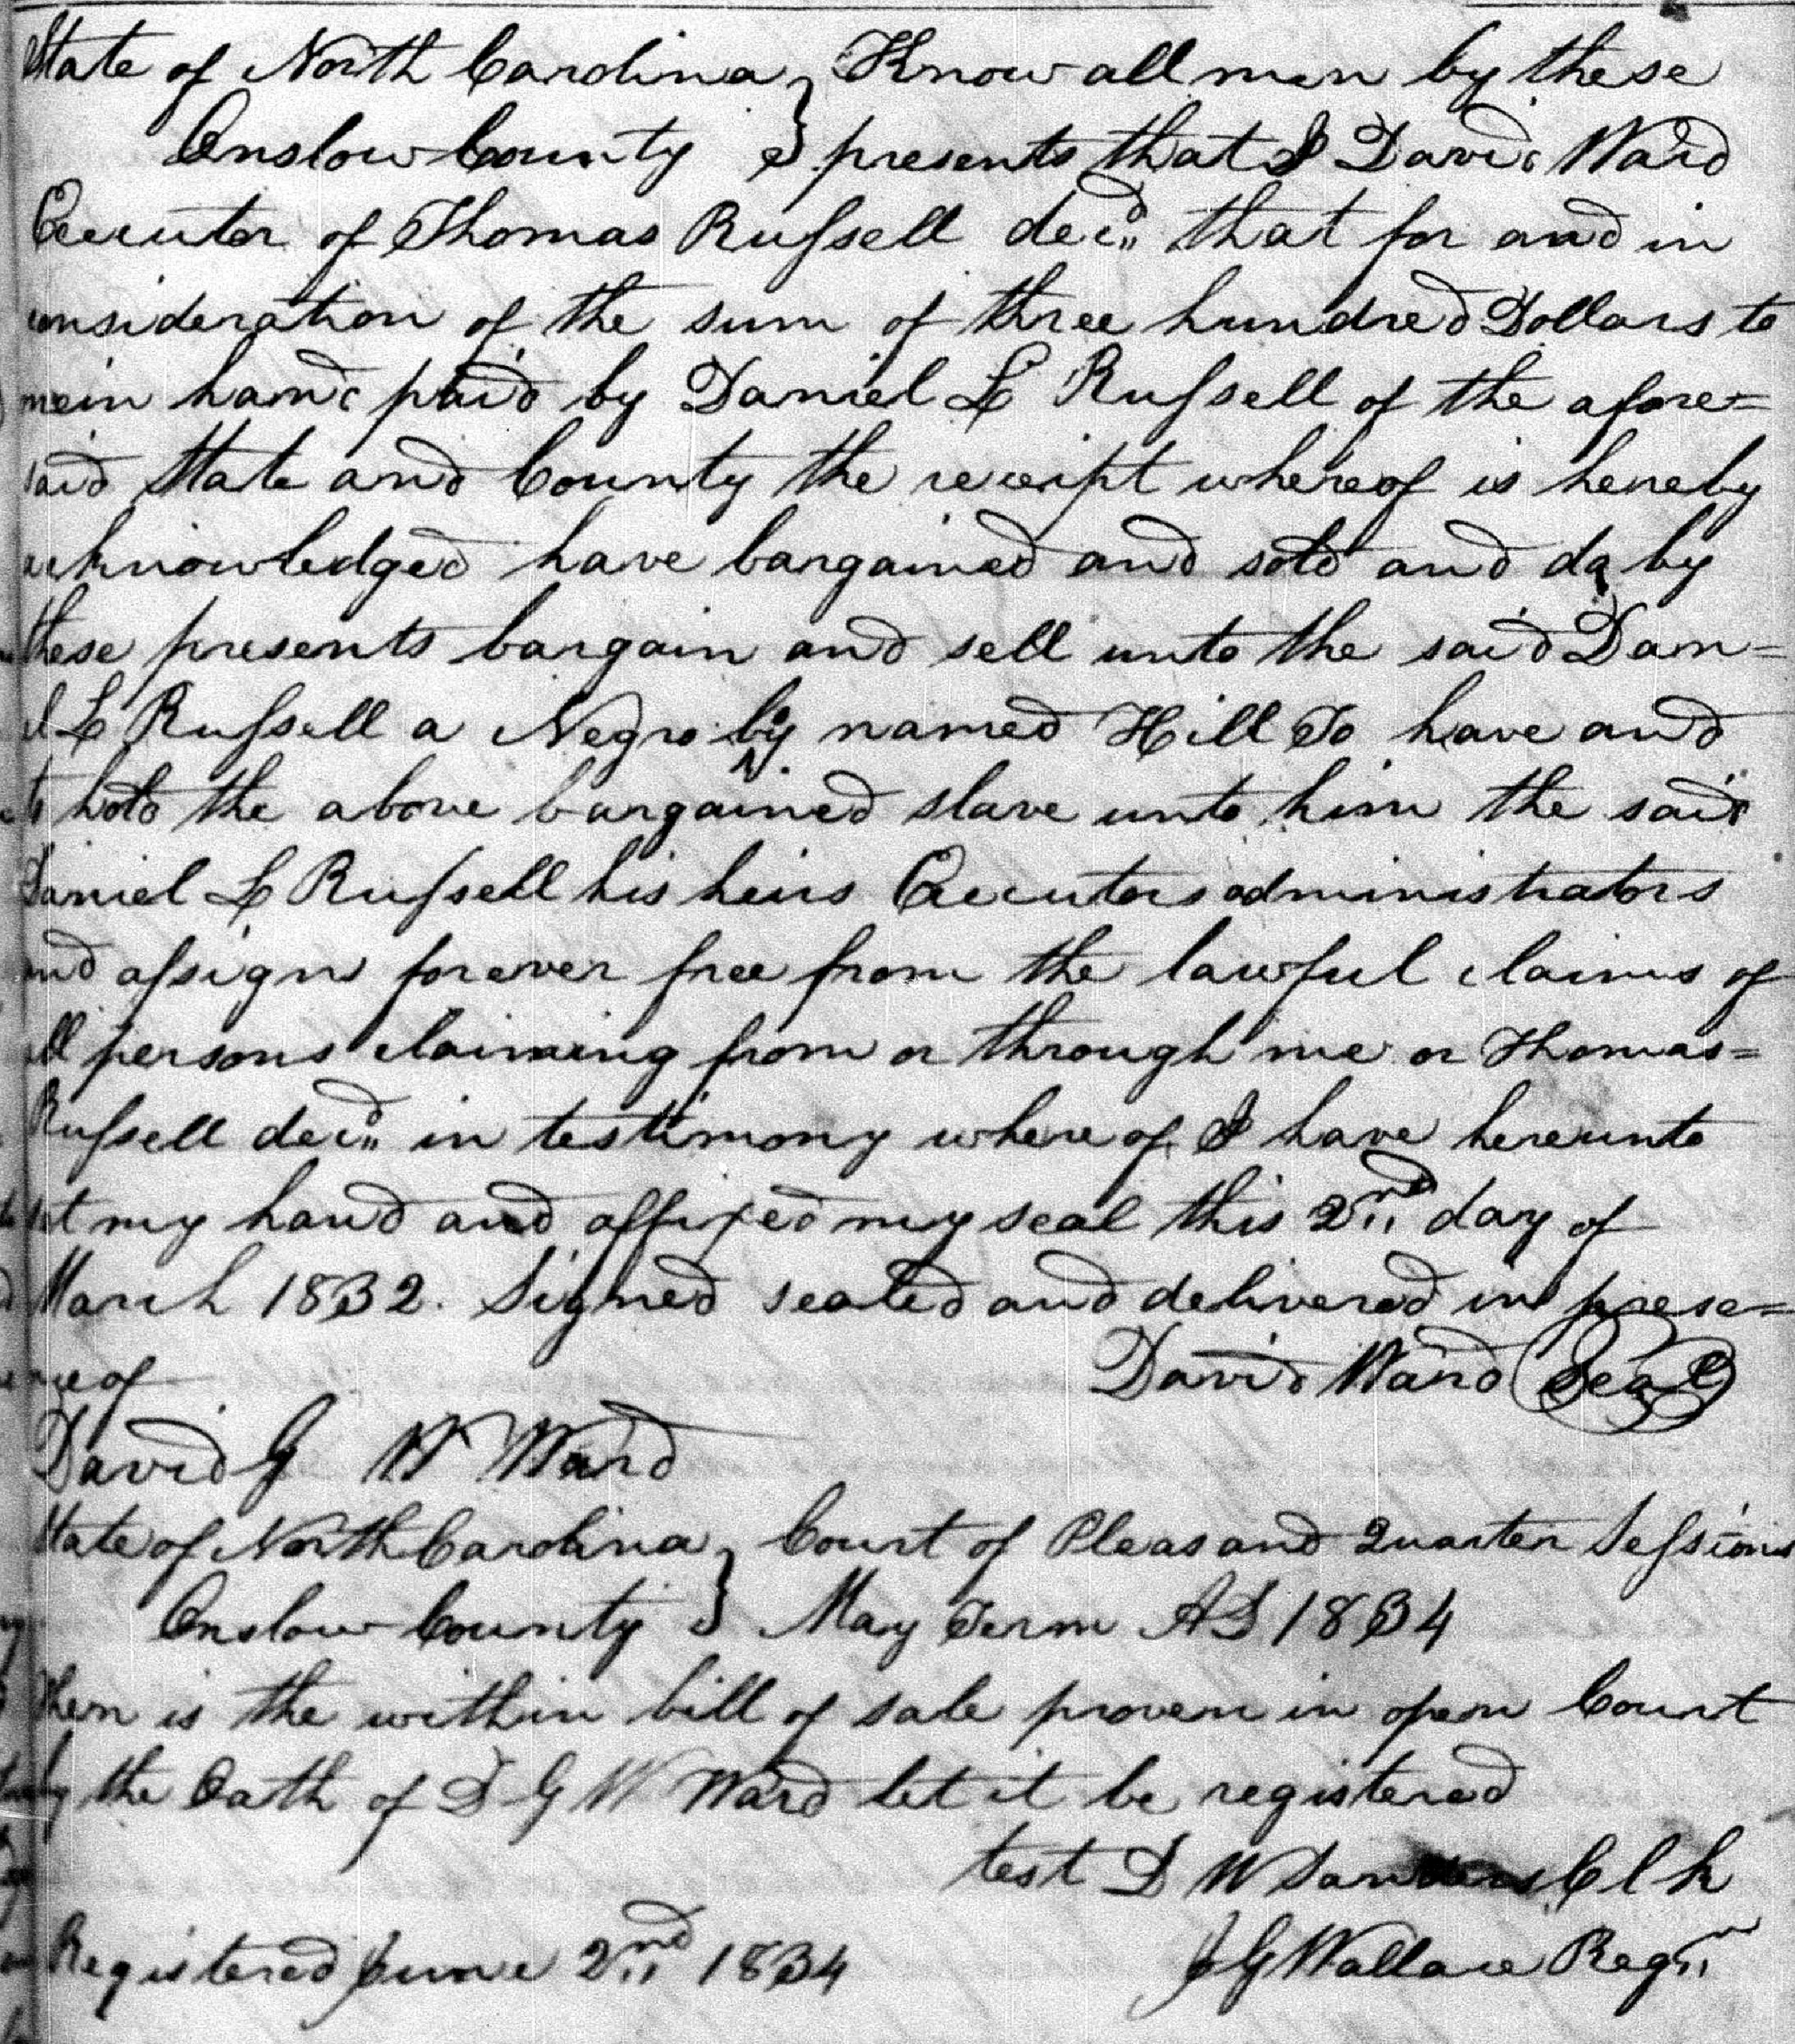 State of North Carolina } Know all men by these
Onslow County } presents that I David Ward
Executor of Thomas Russell decd that for and in
consideration of the sum of three hundred Dollars to
me in hand paid by Daniel L Russell of the afore=
said State and County the receipt whereof is hereby
acknowledged have bargained and sold and do by
these presents bargain and sell unto the said Dan=
el L Russell a Negro boy named Hill To have and
to hold the above bargained slave unto him the said
Daniel L Russell his heirs Executors administrators
and assigns forever free from the lawful claims of
all persons claiming from or through me or Thomas=
Russell decd in testimony where of I have hereunto
set my hand and affixed my seal this 2nd day of
March 1832. Signed sealed and delivered in prese=
nce of David Ward Seal
David G W Ward
State of North Carolina } Court of Pleas and Quarter Sessions
Onslow County } May Term AD 1834
Then is the within bill of sale proven in open Court
by the Oath of D G W Ward let it be registered
test D W Sanders Clk
Registered June 2nd 1834 J G Wallace Regr